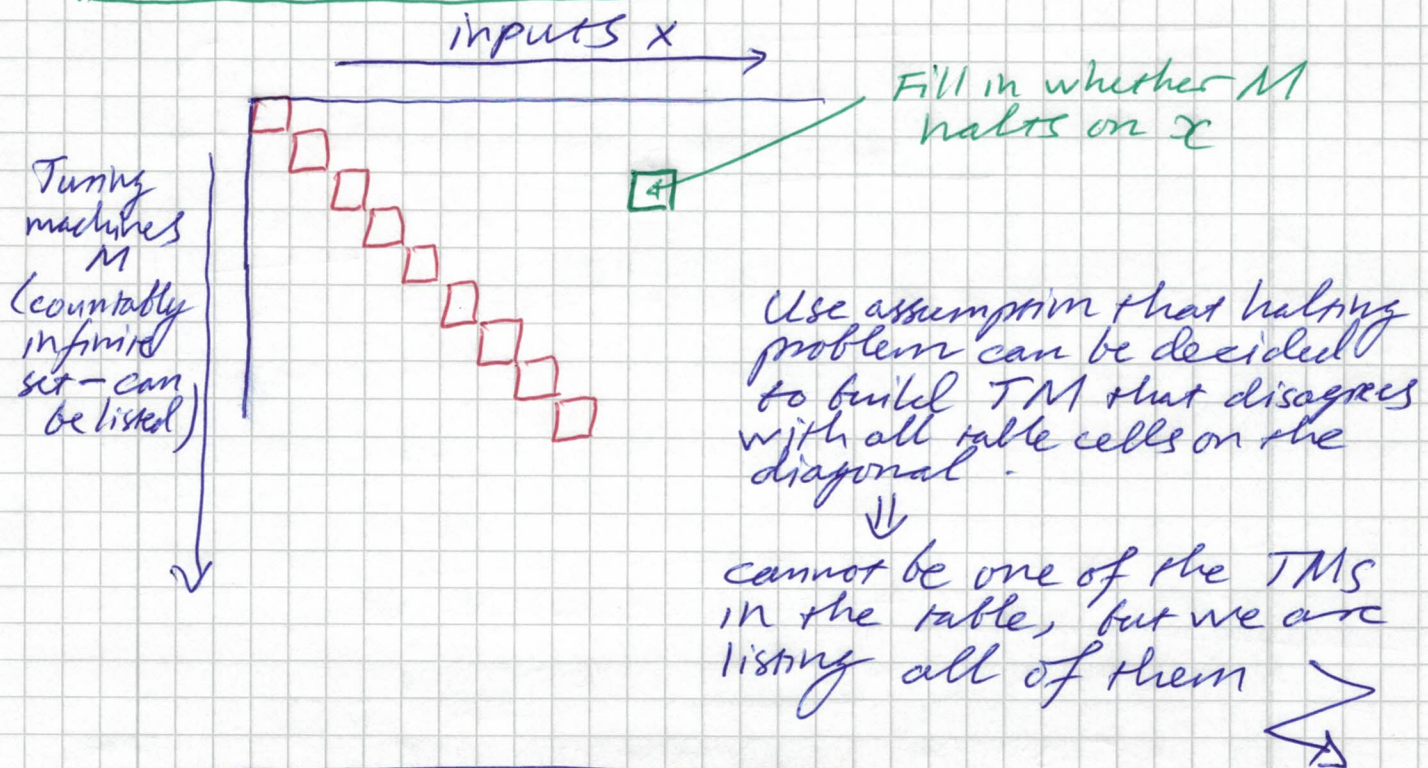 inputs x
Fill in whether M
halts on x
Turing
machines
M
(countably
infinite
set - can
be listed)
Use assumption that halting
problem can be decided
to build TM that disagrees
with all table cells on the
diagonal.
⇓
cannot be one of the TMs
in the table, but we are
listing all of them